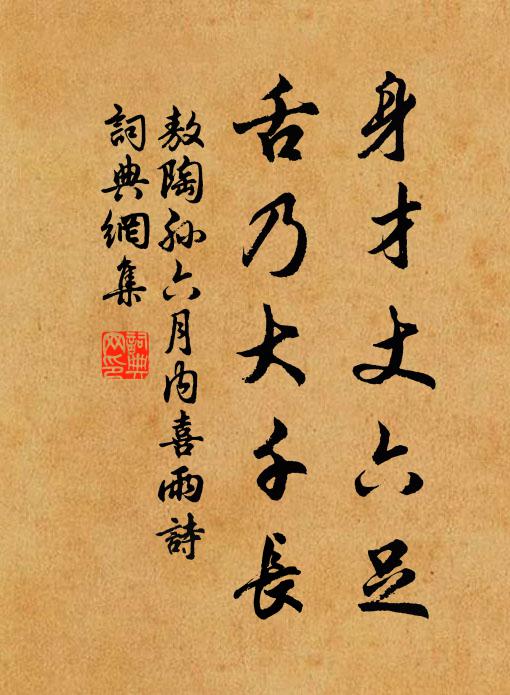 身才丈六足
舌乃大千長
敖陶孫六月內喜雨詩
詞典網集
詞典網印